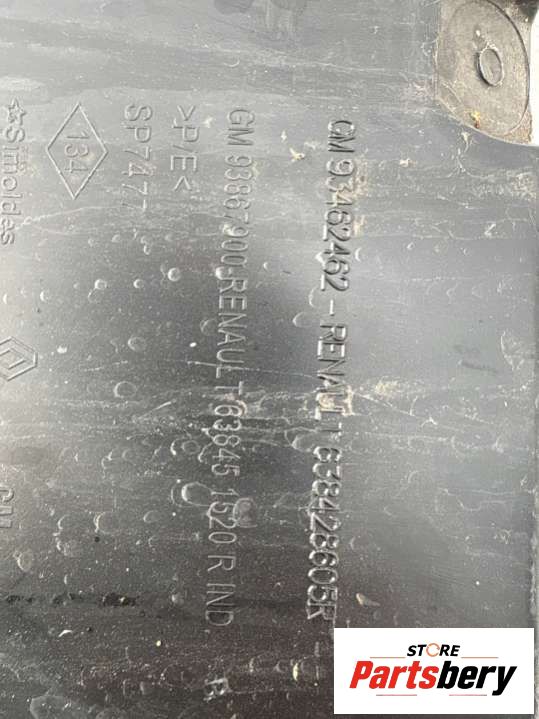 GM 93462462 - RENAULT 638428605R
GM 93867900-RENAULT 63845 1520 R IND
B
>P/E<
SP7477
134
Simoldes
GM
STORE
Partsbery